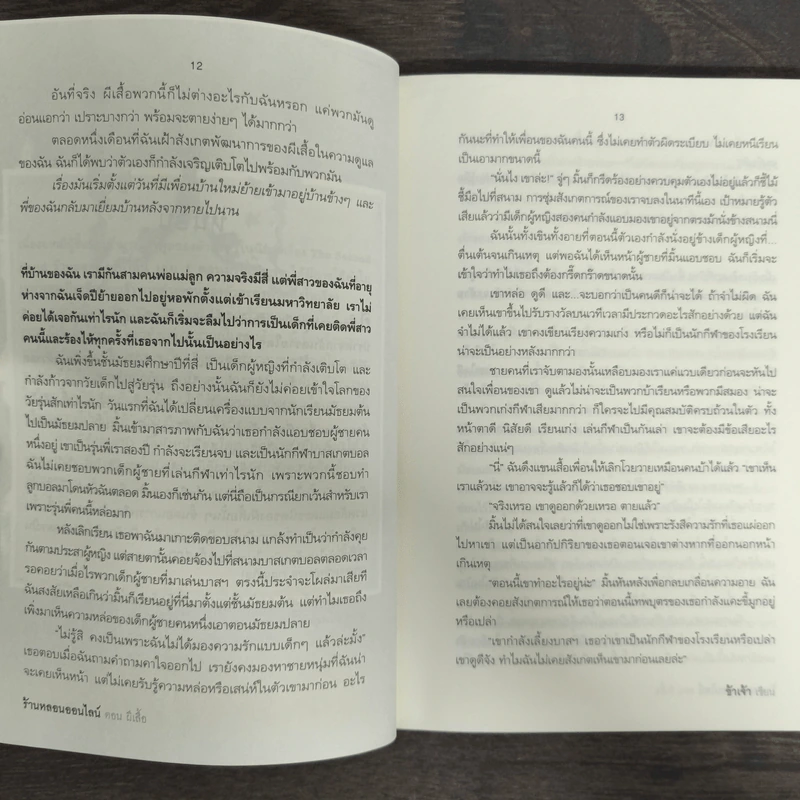 12
อันที่จริง ผีเสื้อพวกนี้ก็ไม่ต่างอะไรกับฉันหรอก แค่พวกมันดู
อ่อนแอกว่า เปราะบางกว่า พร้อมจะตายง่ายๆ ได้มากกว่า
ตลอดหนึ่งเดือนที่ฉันเฝ้าสังเกตพัฒนาการของผีเสื้อในความดูแล
ของฉัน ฉันก็ได้พบว่าตัวเองก็กำลังเจริญเติบโตไปพร้อมกับพวกมัน
เรื่องมันเริ่มตั้งแต่วันที่มีเพื่อนบ้านใหม่ย้ายเข้ามาอยู่บ้านข้างๆ และ
พี่ของฉันกลับมาเยี่ยมบ้านหลังจากหายไปนาน
ที่บ้านของฉัน เรามีกันสามคนพ่อแม่ลูก ความจริงมีสี่ แต่พี่สาวของฉันที่อายุ
ห่างจากฉันเจ็ดปีย้ายออกไปอยู่หอพักตั้งแต่เข้าเรียนมหาวิทยาลัย เราไม่
ค่อยได้เจอกันเท่าไรนัก และฉันก็เริ่มจะลืมไปว่าการเป็นเด็กที่เคยติดพี่สาว
คนนี้และร้องไห้ทุกครั้งที่เธอจากไปนั้นเป็นอย่างไร
ฉันเพิ่งขึ้นชั้นมัธยมศึกษาปีที่สี่ เป็นเด็กผู้หญิงที่กำลังเติบโต และ
กำลังก้าวจากวัยเด็กไปสู่วัยรุ่น ถึงอย่างนั้นฉันก็ยังไม่ค่อยเข้าใจโลกของ
วัยรุ่นสักเท่าไรนัก วันแรกที่ฉันได้เปลี่ยนเครื่องแบบจากนักเรียนมัธยมต้น
ไปเป็นมัธยมปลาย มิ้นเข้ามาสารภาพกับฉันว่าเธอกำลังแอบชอบผู้ชายคน
หนึ่งอยู่ เขาเป็นรุ่นพี่เราสองปี กำลังจะเรียนจบ และเป็นนักกีฬาบาสเกตบอล
ฉันไม่เคยชอบพวกเด็กผู้ชายที่เล่นกีฬาเท่าไรนัก เพราะพวกนี้ชอบทำ
ลูกบอลมาโดนหัวฉันตลอด มิ้นเองก็เช่นกัน แต่นี่ถือเป็นกรณียกเว้นสำหรับเรา
เพราะรุ่นพี่คนนี้หล่อมาก
หลังเลิกเรียน เธอพาฉันมาเกาะติดขอบสนาม แกล้งทำเป็นว่ากำลังคุย
กันตามประสาผู้หญิง แต่สายตานั้นคอยจ้องไปที่สนามบาสเกตบอลตลอดเวลา
รอคอยว่าเมื่อไรพวกเด็กผู้ชายที่มาเล่นบาสฯ ตรงนี้ประจำจะโผล่มาเสียที
ฉันสงสัยเหลือเกินว่ามิ้นก็เรียนอยู่ที่นี่มาตั้งแต่ชั้นมัธยมต้น แต่ทำไมเธอถึง
เพิ่งมาเห็นความหล่อของเด็กผู้ชายคนหนึ่งเอาตอนมัธยมปลาย
“ไม่รู้สิ คงเป็นเพราะฉันไม่ได้มองความรักแบบเด็กๆ แล้วล่ะมั้ง”
เธอตอบเมื่อฉันถามคำถามคาใจออกไป เรายังคงมองหาชายหนุ่มที่ฉันน่า
จะเคยเห็นหน้า แต่ไม่เคยรับรู้ความหล่อหรือเสน่ห์ในตัวเขามาก่อน อะไร
ร้านหลอนออนไลน์ ตอน ผีเสื้อ
13
กันนะที่ทำให้เพื่อนของฉันคนนี้ ซึ่งไม่เคยทำตัวผิดระเบียบ ไม่เคยหนีเรียน
เป็นเอามากขนาดนี้
“นั่นไง เขาล่ะ!” จู่ๆ มิ้นก็กรีดร้องอย่างควบคุมตัวเองไม่อยู่แล้วก็ชี้ไม้
ชี้มือไปที่สนาม การซุ่มสังเกตการณ์ของเราจบลงในนาทีนี้เอง เป้าหมายรู้ตัว
เสียแล้วว่ามีเด็กผู้หญิงสองคนกำลังแอบมองเขาอยู่จากตรงม้านั่งข้างสนามนี่
ฉันนั้นทั้งเขินทั้งอายที่ตอนนี้ตัวเองกำลังนั่งอยู่ข้างเด็กผู้หญิงที่...
ตื่นเต้นจนเกินเหตุ แต่พอฉันได้เห็นหน้าผู้ชายที่มิ้นแอบชอบ ฉันก็เริ่มจะ
เข้าใจว่าทำไมเธอถึงต้องกรี๊ดกร๊าดขนาดนั้น
เขาหล่อ ดูดี และ...จะบอกว่าเป็นคนดีก็น่าจะได้ ถ้าจำไม่ผิด ฉัน
เคยเห็นเขาขึ้นไปรับรางวัลบนเวทีเวลามีประกวดอะไรสักอย่างด้วย แต่ฉัน
จำไม่ได้แล้ว เขาคงเขียนเรียงความเก่ง หรือไม่ก็เป็นนักกีฬาของโรงเรียน
น่าจะเป็นอย่างหลังมากกว่า
ชายคนที่เราจับตามองนั้นเหลือบมองเราแค่แวบเดียวก่อนจะหันไป
สนใจเพื่อนของเขา ดูแล้วไม่น่าจะเป็นพวกบ้าเรียนหรือพวกมีสมอง น่าจะ
เป็นพวกเก่งกีฬาเสียมากกว่า ก็ใครจะไปมีคุณสมบัติครบถ้วนในตัว ทั้ง
หน้าตาดี นิสัยดี เรียนเก่ง เล่นกีฬาเป็นกันเล่า เขาจะต้องมีข้อเสียอะไร
สักอย่างแน่ๆ
“นี่” ฉันดึงแขนเสื้อเพื่อนให้เลิกโวยวายเหมือนคนบ้าได้แล้ว “เขาเห็น
เราแล้วนะ เขาอาจจะรู้แล้วก็ได้ว่าเธอชอบเขาอยู่”
“จริงเหรอ เขาดูออกด้วยเหรอ ตายแล้ว”
มิ้นไม่ได้สนใจเลยว่าที่เขาดูออกไม่ใช่เพราะรังสีความรักที่เธอแผ่ออก
ไปหาเขา แต่เป็นอากัปกิริยาของเธอตอนเจอเขาต่างหากที่ออกนอกหน้า
เกินเหตุ
“ตอนนี้เขาทำอะไรอยู่น่ะ” มิ้นหันหลังเพื่อกลบเกลื่อนความอาย ฉัน
เลยต้องคอยสังเกตการณ์ให้เธอว่าตอนนี้เทพบุตรของเธอกำลังแคะขี้มูกอยู่
หรือเปล่า
“เขากำลังเลี้ยงบาสฯ เธอว่าเขาเป็นนักกีฬาของโรงเรียนหรือเปล่า
เขาดูดีจัง ทำไมฉันไม่เคยสังเกตเห็นเขามาก่อนเลยล่ะ”
ข้าเจ้า เขียน